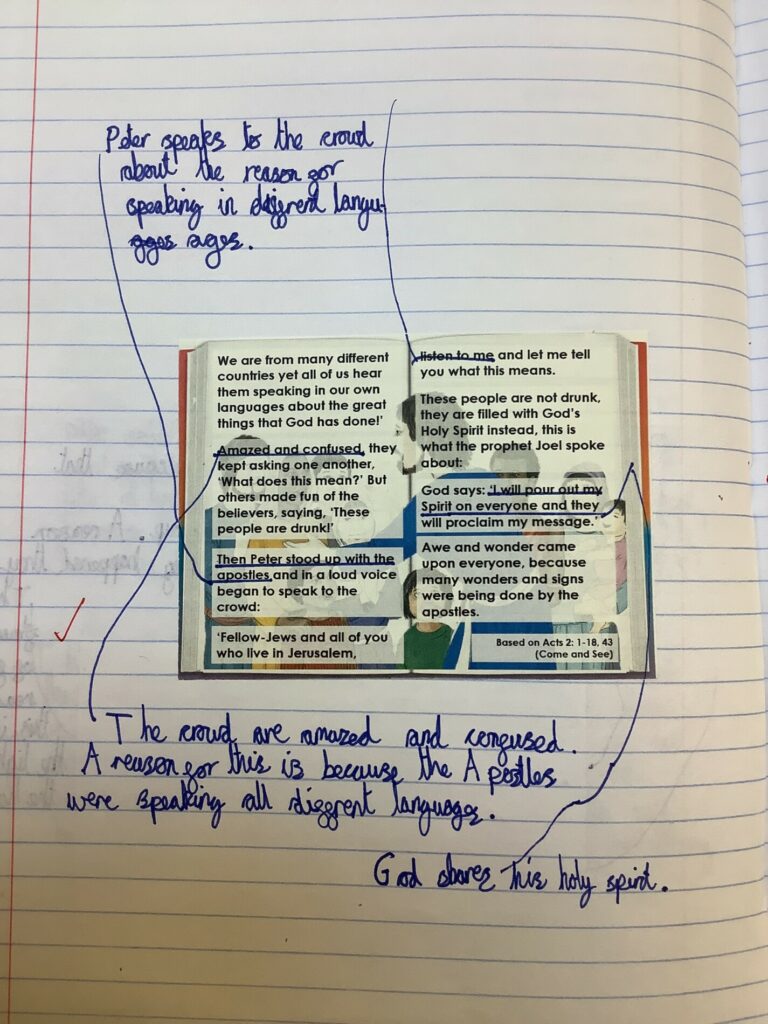 Peter speaks to the crowd
about the reason for
speaking in diffrent langu-
ages.
We are from many different
countries yet all of us hear
them speaking in our own
languages about the great
things that God has done!'
Amazed and confused, they
kept asking one another,
'What does this mean?' But
others made fun of the
believers, saying, 'These
people are drunk!'
Then Peter stood up with the
apostles and in a loud voice
began to speak to the
crowd:
'Fellow-Jews and all of you
who live in Jerusalem,
listen to me and let me tell
you what this means.
These people are not drunk,
they are filled with God's
Holy Spirit instead, this is
what the prophet Joel spoke
about:
God says: 'I will pour out my
Spirit on everyone and they
will proclaim my message.'
Awe and wonder came
upon everyone, because
many wonders and signs
were being done by the
apostles.
Based on Acts 2: 1-18, 43
(Come and See)
The crowd are amazed and confused.
A reason for this is because the Apostles
were speaking all diffrent languages.
God shares this holy spirit.